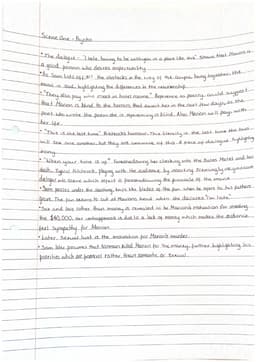 Scene One - Psycho
• The dialogue - "I hate having to be with you in a place like this" shows that Marion is
a good person who desires respectability.
• As Sam lists off all the obstacles in the way of the couple being together, the
music is sad, highlighting the differences in the relationship.
• "They also pay who meet in hotel rooms." Reference to paying could suggest
that Marion is blind to the horrors that await her in the next few days, as the
poet who wrote the poem this is referencing is blind. Also Marion will pay with
her life.
• "This is the last time" Hitchcock humour. This literally is the last time the two
will see one another but they are unaware of this. A piece of dialogue highlighting
irony.
• "When your time is up". Foreshadowing her checking into the Bates Motel and her
death. Typical Hitchcock. Playing with the audience by inserting seemingly insignificant
dialogue into scene which in fact is foreshadowing the finale of the movie.
• Sam passes under the ceiling fan like blades of the fan when he refers to his fathers
The fan seems to cut at Marion's head when she declares "I'm late".
• Sex and love rather than money is revealed to be Marion's motivation for stealing
the $40,000. Her unhappiness is due to a lack of money which makes the audience
feel sympathy for Marion.
• Later, sexual lust is the motivation for Marion's murder.
• Sam later presumes that Norman killed Marion for the money, further highlighting his
priorities which are financial rather than romantic or sexual.